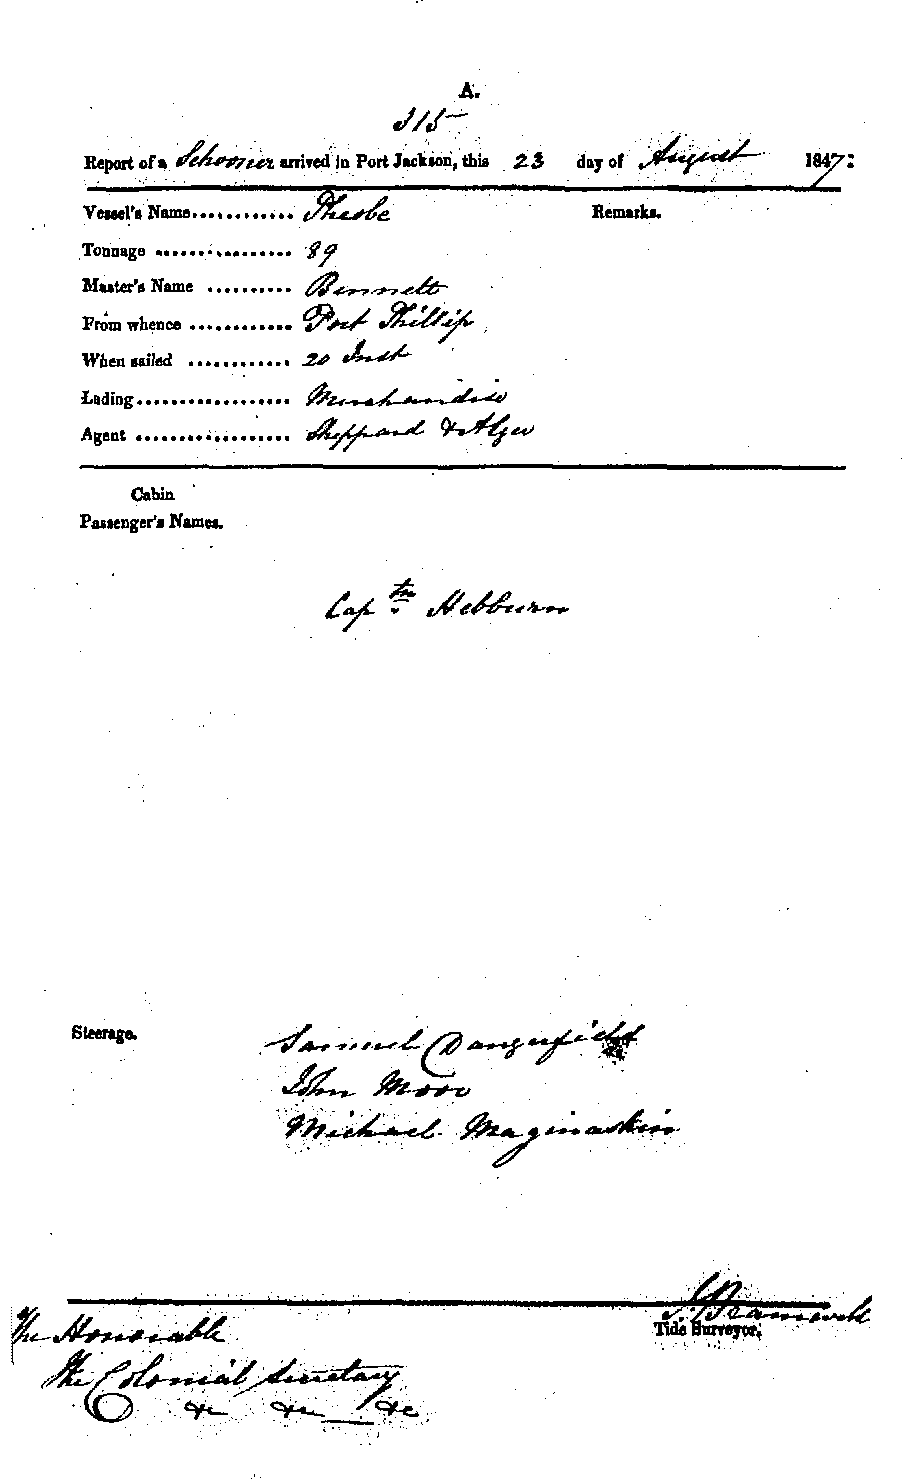 A.
315
Report of a Schooner arrived in Port Jackson, this 23 day of August 1847:
Vessel's Name............ Phebe
Remarks.
Tonnage ................ 89
Master's Name .......... Bennett
From whence ............ Port Phillip
When sailed ............ 20 Inst
Lading.................. Merchandise
Agent .................. Sheppard & Alger
Cabin
Passenger's Names.
Captn Hebburn
Steerage.
Samuel Dangerfield
John Moor
Michael Maginaskin
Tide Surveyor.
The Honorable
The Colonial Secretary
&c &c &c